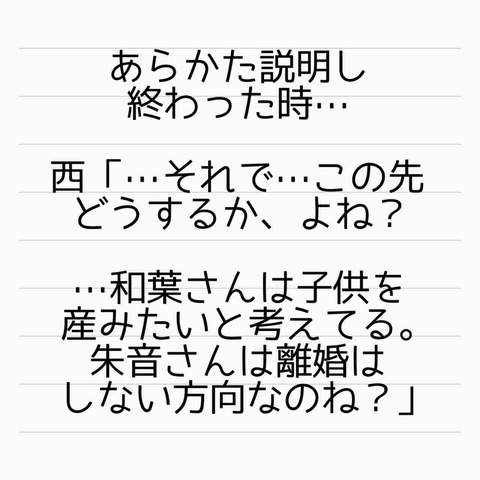 あらかた説明し
終わった時…
西「…それで…この先
どうするか、よね？
…和葉さんは子供を
産みたいと考えてる。
朱音さんは離婚は
しない方向なのね？」